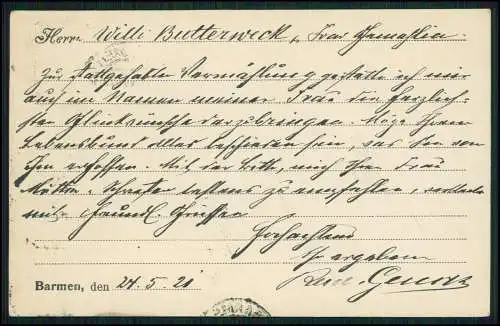 Herrn Willi Butterweck, Frau Gemahlin.
Zur stattgehabten Vermählung gestatte ich mir
auch im Namen meiner Frau die herzlich-
sten Glückwünsche darzubringen. Möge Ihrem
Lebensbund alles beschieden sein, was Sie von
ihm erhoffen. Mit der Bitte, mich Ihrer Frau
Mutter, bestens zu empfehlen, verbleibe
mit freundl. Grüssen
Hochachtend
ergeben
Barmen, den 24.5.21